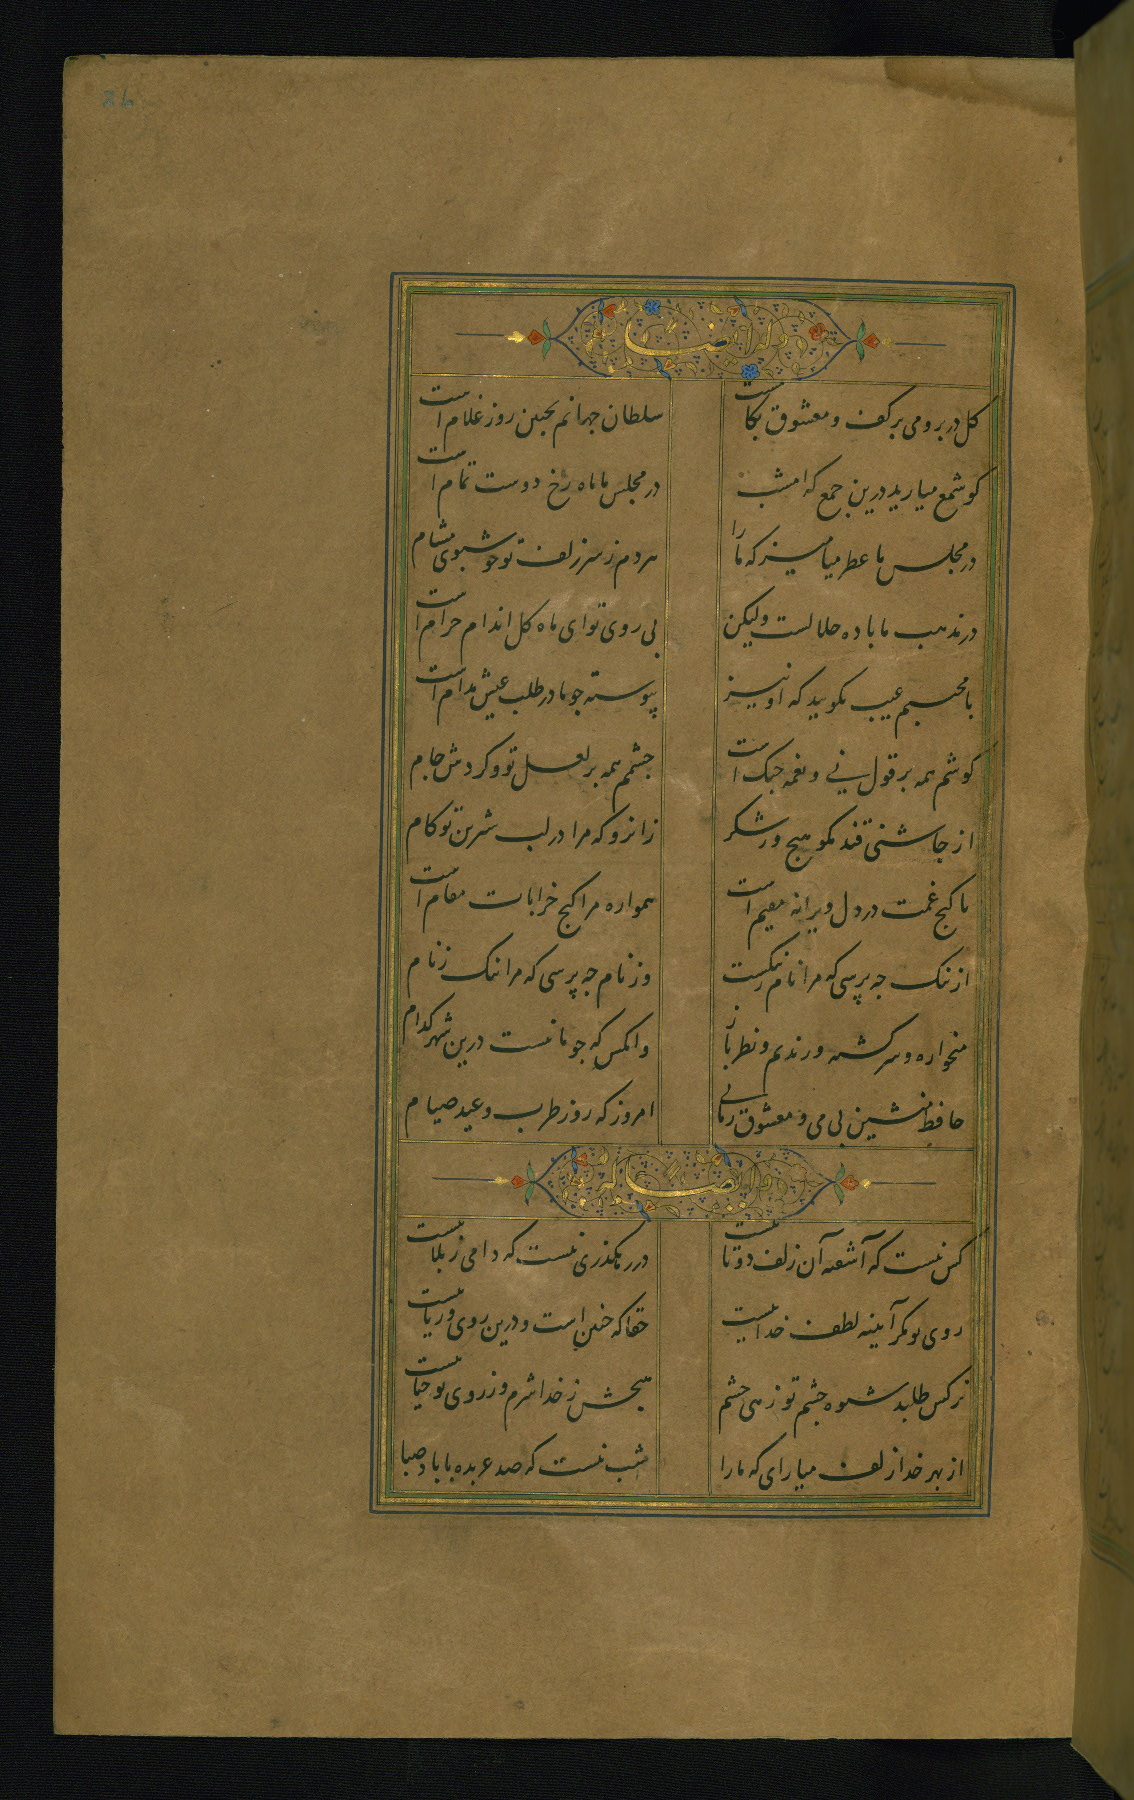 وله ایضا
گل در بر و می بر کف و معشوق بکامست
سلطان جهانم بچنین روز غلام است
کو شمع میارید درین جمع که امشب
در مجلس ما ماه رخ دوست تمام است
در مجلس ما عطر میامیز که ما را
هر دم ز سر زلف تو خوشبوی مشام
در مذهب ما باده حلالست ولیکن
بی روی تو ای ماه گل اندام حرام است
با محتسبم عیب مگویید که او نیز
پیوسته چو ما در طلب عیش مدام است
گوشم همه بر قول نی و نغمه چنک است
چشمم همه بر لعل تو و گردش جام
از چاشنی قند مگو هیچ و ز شکر
زانرو که مرا در لب شیرین تو کام
تا گنج غمت در دل ویرانه مقیم است
همواره مرا کنج خرابات مقام است
از ننک چه پرسی که مرا نام ز ننگست
وز نام چه پرسی که مرا ننک ز نام
میخواره و سرگشته و رندیم و نظرباز
وانکس که چو ما نیست درین شهر کدام
حافظ منشین بی می و معشوق زمانی
امروز که روز طرب و عید صیام
وله ایضا
کس نیست که آشفته آن زلف دوتا نیست
در رهگذری نیست که دامی ز بلا نیست
روی تو مگر آیینه لطف خداییست
حقا که چنین است و درین روی و ریا نیست
نرگس طلبد شیوه چشم تو زهی چشم
هیچش ز خدا شرم و ز روی تو حیا نیست
از بهر خدا زلف میارای که ما را
شب نیست که صد عربده با باد صبا